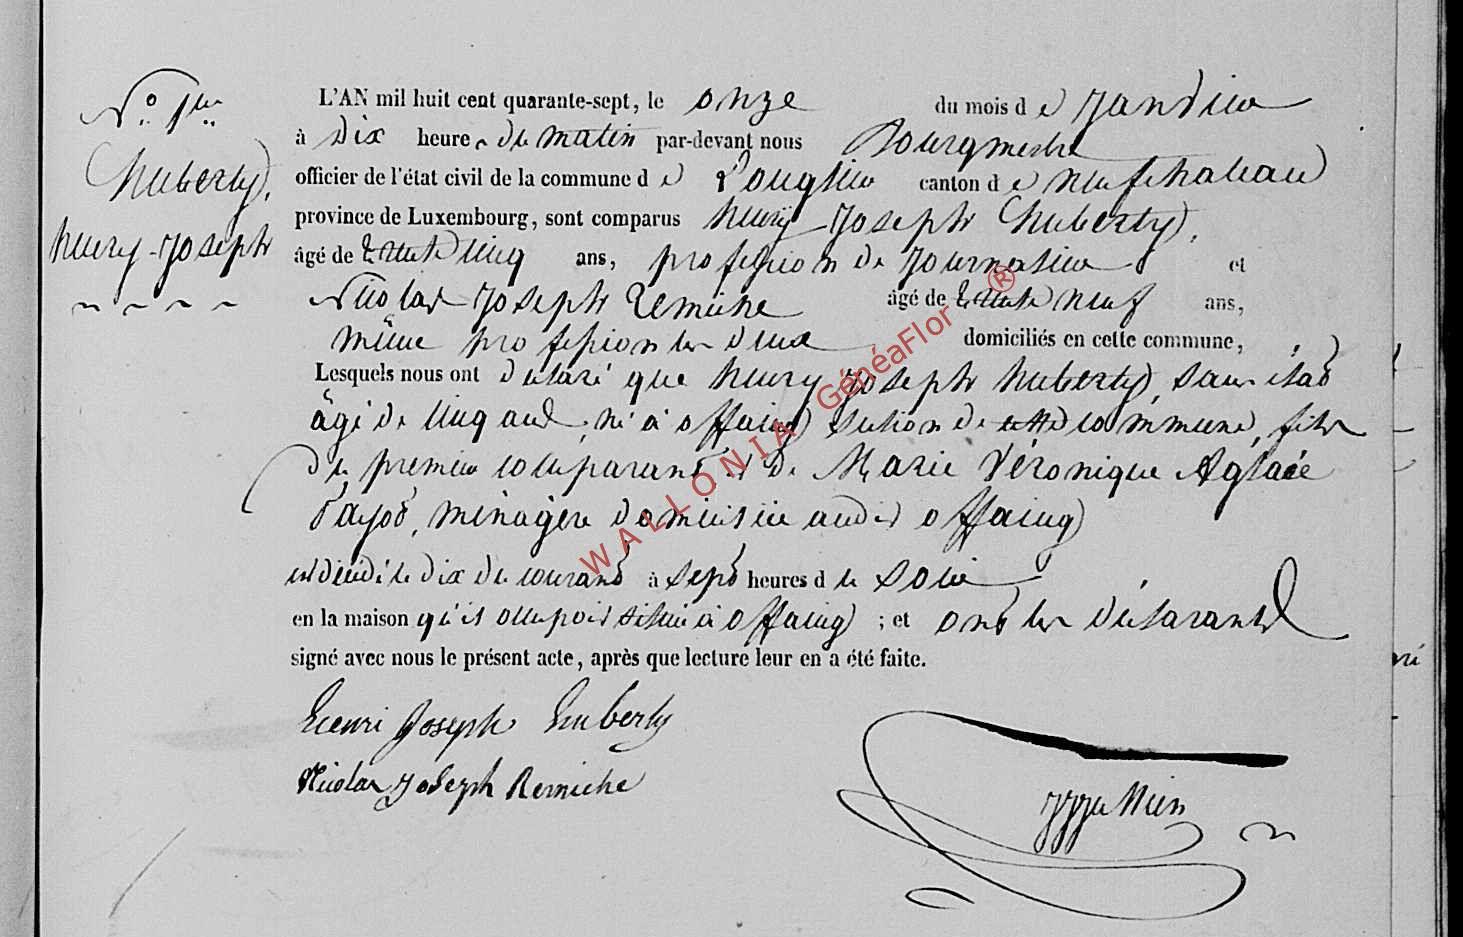 N.o 1er
Huberty,
henry-Joseph
L'AN mil huit cent quarante-sept, le onze du mois de Janvier
à dix heures du matin par-devant nous Bourgmestre
officier de l'état civil de la commune de Longlier canton de neufchateau
province de Luxembourg, sont comparus henry Joseph Huberty,
âgé de trente cinq ans, profession de Journalier et
Nicolas Joseph Remiche âgé de trente neuf ans,
même profession les deux domiciliés en cette commune,
Lesquels nous ont déclaré que henry Joseph huberty, sans état
âgé de cinq ans, né à offaing section de cette commune, fils
du premier comparant et de Marie Véronique Aglaée
ménagère domiciliée audit offaing
est décédé le dix du courant à sept heures du soir
en la maison qu'il occupoit située à offaing ; et ont les déclarants
signé avec nous le présent acte, après que lecture leur en a été faite.
Henri Joseph Huberty
Nicolas Joseph Remiche
WALLONIA GénéaFlor ®